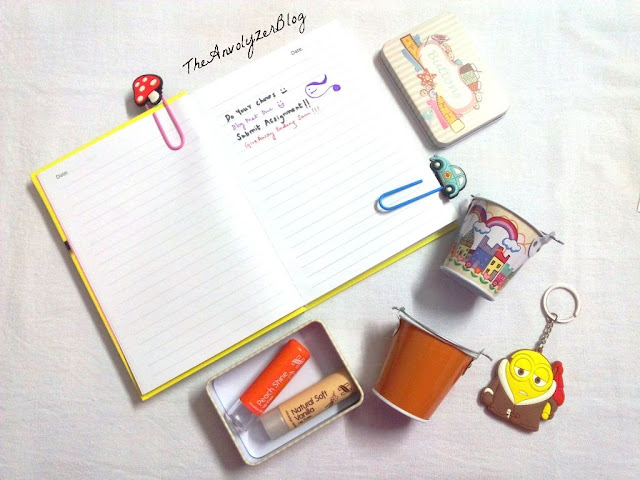 TheAnvolyzerBlog
Date:
Date:
Do Your chores
Blog Post Due
Submit Assignment!!
Giveaway Ending Soon!!!
Buttons
Peach Shine
Natural Soft
Vanilla